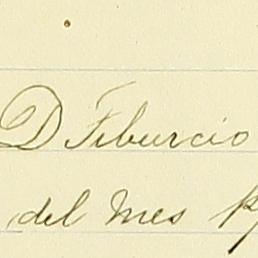 D Tiburcio
del mes